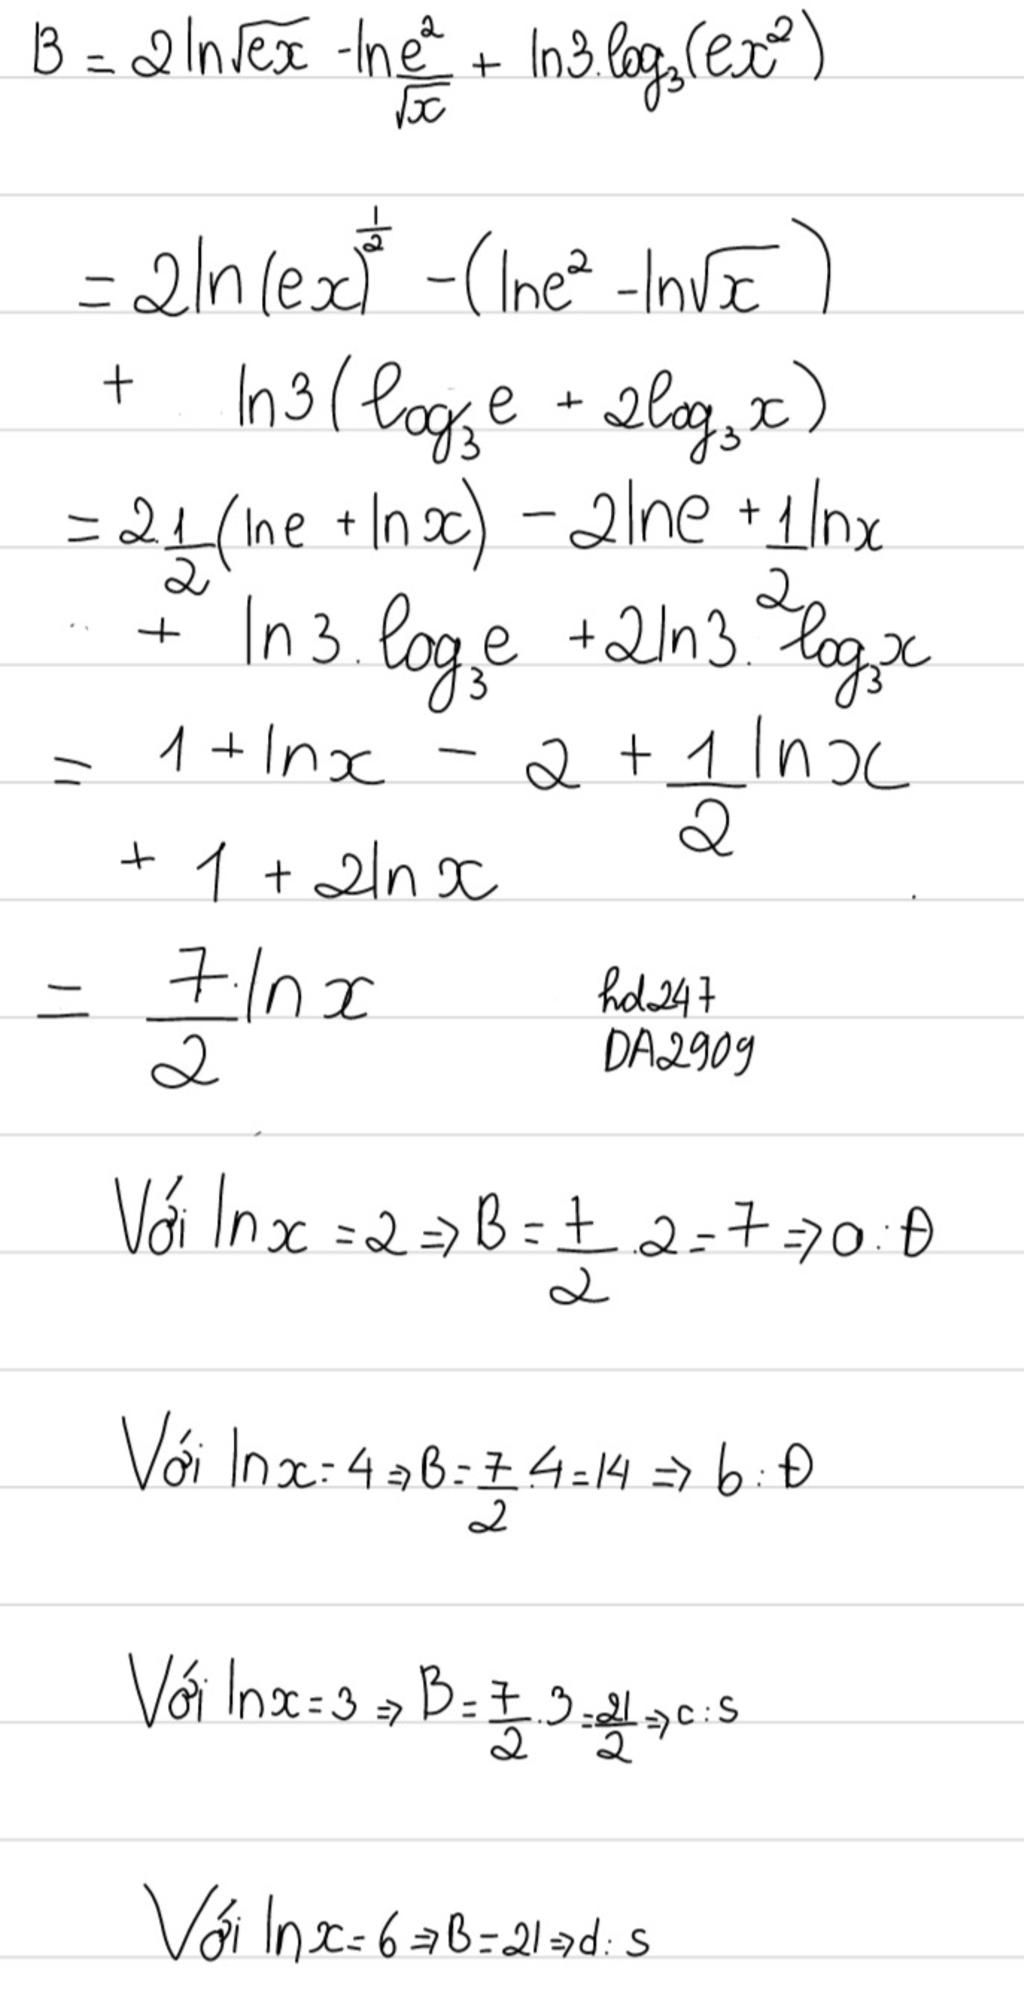 B = 2ln√ex - ln e²/√x + ln3.log₃(ex²)
= 2ln(ex)^½ - (lne² - ln√x)
+ ln3(log₃e + 2log₃x)
= 2.1/2(lne + lnx) - 2lne + 1/2 lnx
+ ln3.log₃e + 2ln3.log₃x
= 1 + lnx - 2 + 1/2 lnx
+ 1 + 2lnx
= 7/2.lnx
hd247
DA2909
Với lnx = 2 ⇒ B = 7/2.2 = 7 ⇒ a: Đ
Với lnx = 4 ⇒ B = 7/2.4 = 14 ⇒ b: Đ
Với lnx = 3 ⇒ B = 7/2.3 = 21/2 ⇒ c: S
Với lnx = 6 ⇒ B = 21 ⇒ d: S